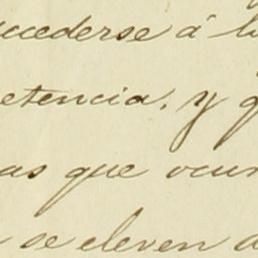 ccederse á l
etencia, y q
as que ocur
se eleven a